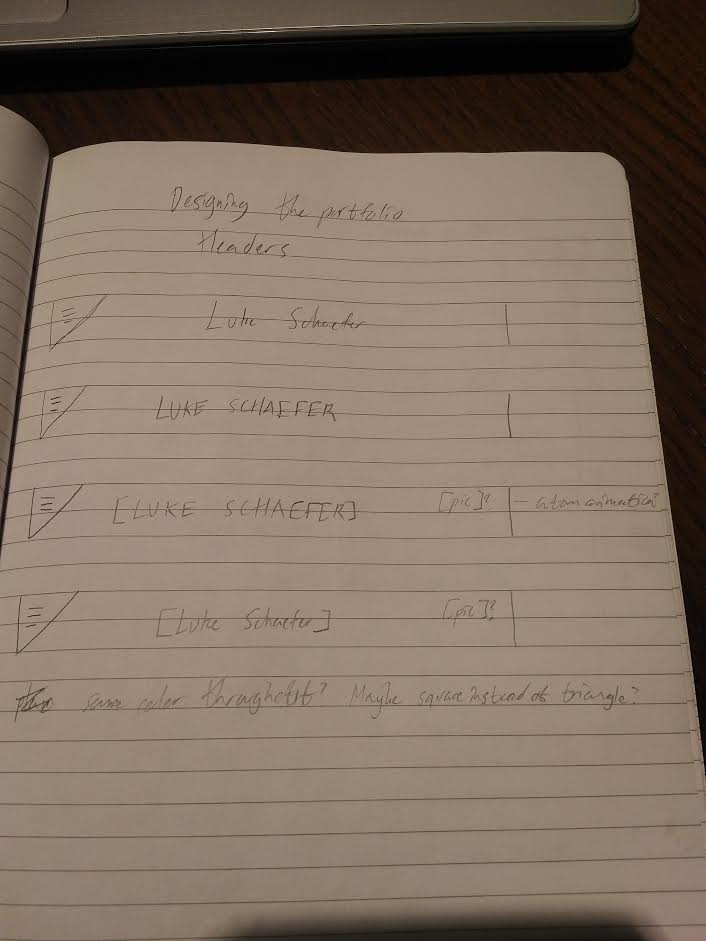 Designing the portfolio
Headers
Luke Schaefer
LUKE SCHAEFER
[LUKE SCHAEFER] [pic]? - atom animation?
[Luke Schaefer] [pic]?
same color throughout? Maybe square instead of triangle?